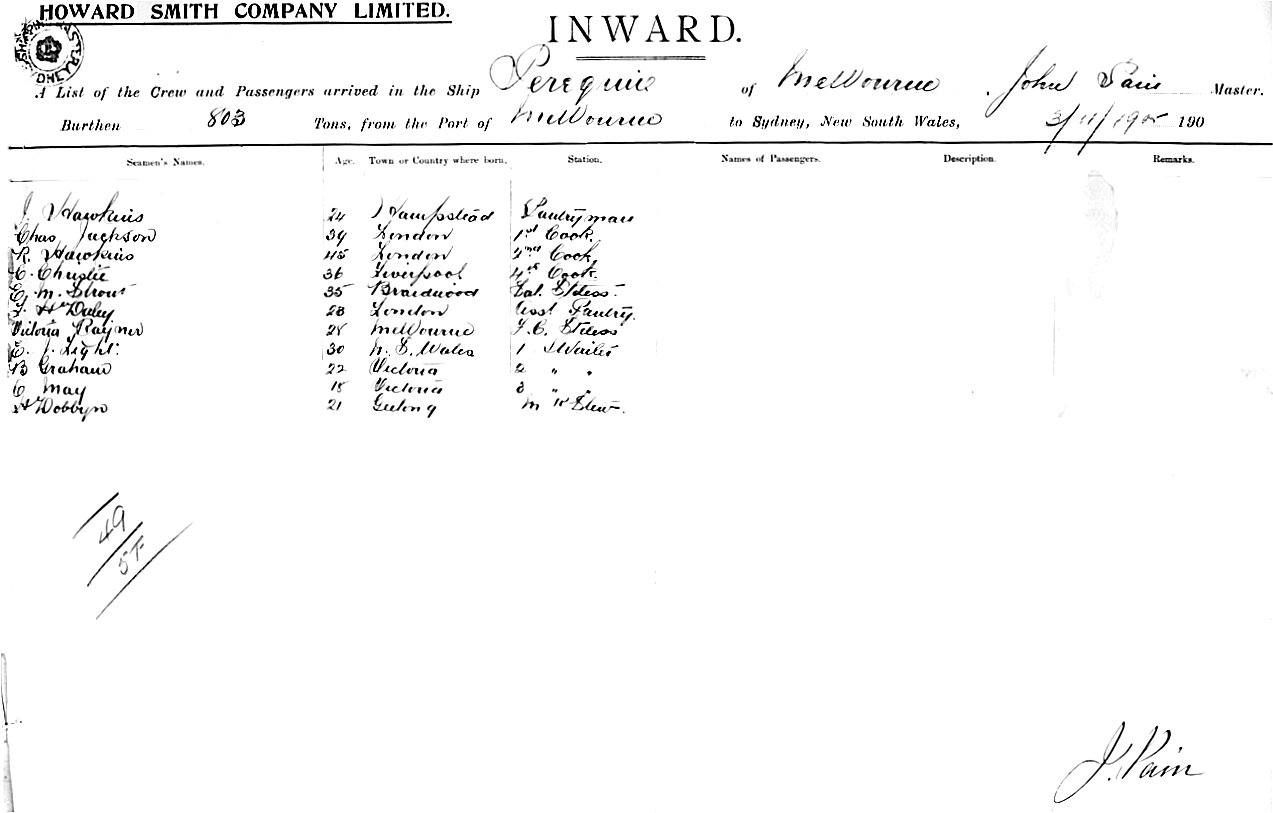 HOWARD SMITH COMPANY LIMITED.
INWARD.
A List of the Crew and Passengers arrived in the Ship Peregrine of Melbourne, John Pain Master.
Burthen 803 Tons, from the Port of Melbourne to Sydney, New South Wales, 3/11/1905 190
Seamen's Names. Age. Town or Country where born. Station. Names of Passengers. Description. Remarks.
J. Hawkins 24 Hampstead Pantryman
Chas Jackson 39 London 1st Cook.
R. Hawkins 45 London 2nd Cook,
C. Christie 36 Liverpool 4th Cook.
E. M. Strout 35 Braidwood Sal. Stdess.
F. H. Daley 28 London Asst Pantry.
Victoria Rayner 28 Melbourne F. C. Stdess
E. J. Light. 30 N. S. Wales 1 Waiter
B Graham 22 Victoria 2 " "
C May 18 Victoria 3 " "
H Dobbyn 21 Geelong M R Stew.
49
54
J. Pain